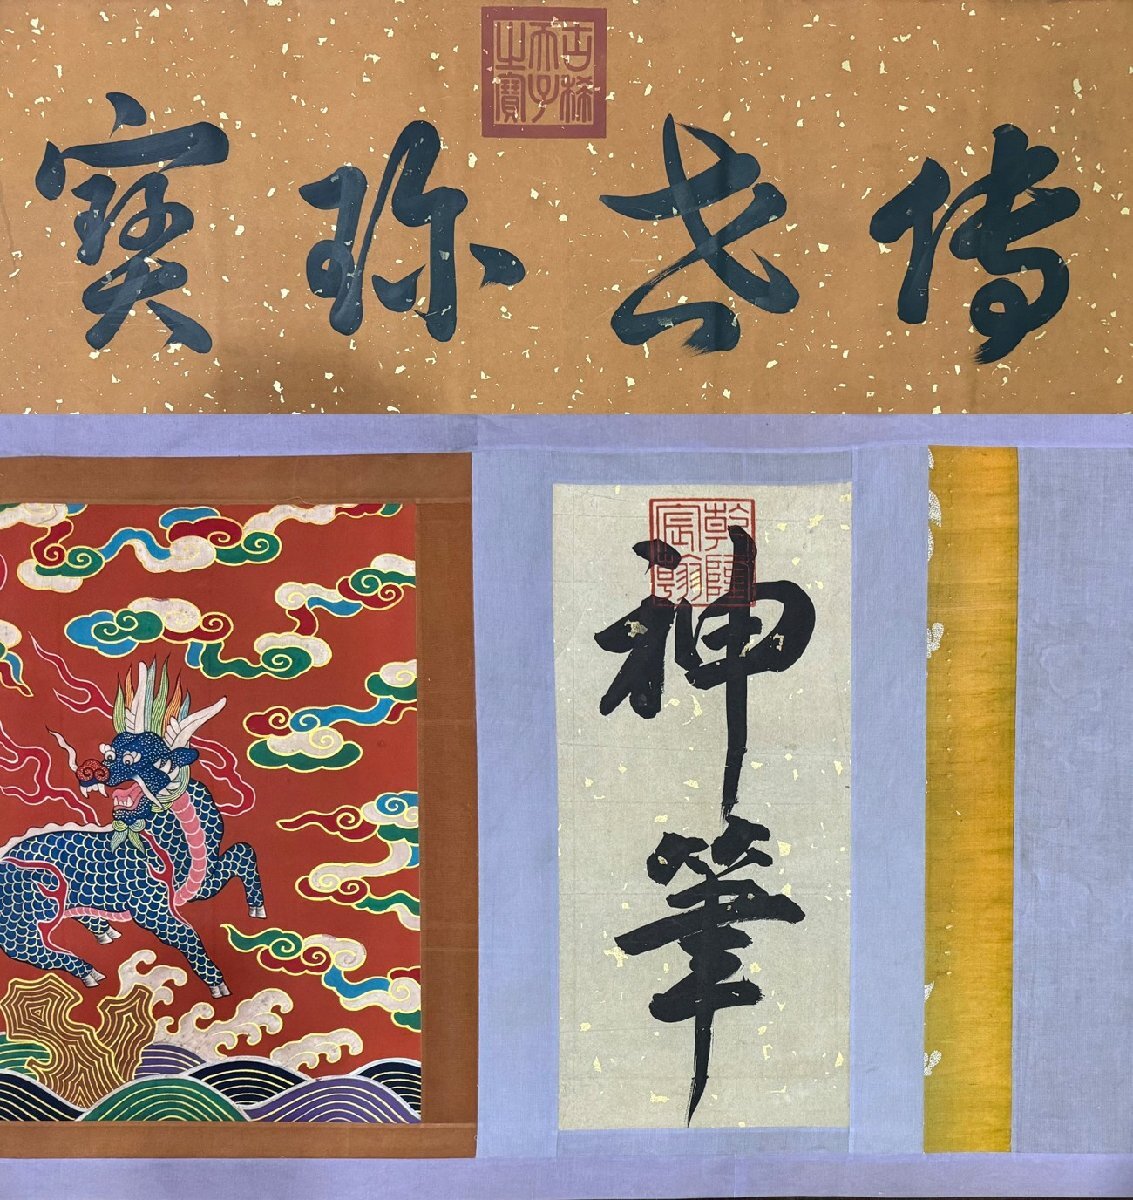 古稀天子之寶
傳世珎寶
乾隆宸翰
神筆